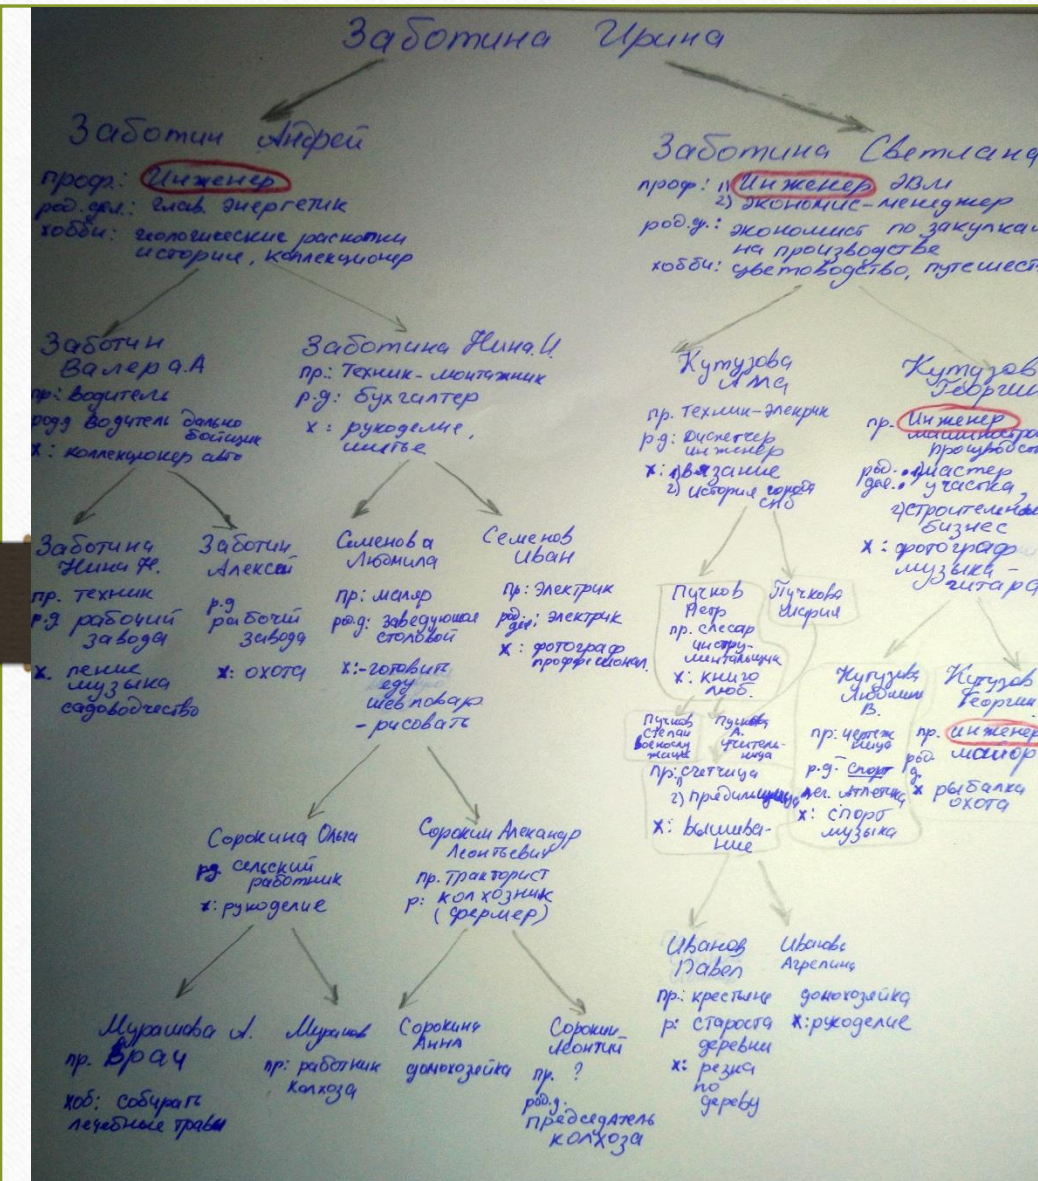 Заботина Ирина
Заботин Андрей
проф.: Инженер
род. дел.: глав. энергетик
хобби: геологические раскопки
истории, коллекционер
Заботина Светлана
проф: 1) Инженер ЭВМ
2) экономис-менеджер
род.д.: экономист по закупкам
на производстве
хобби: цветоводство, путешест
Заботин
Валера.А
пр: Водитель
род.д Водитель дально
бойщик
х: коллекционер авто
Заботина Нина.И.
пр.: Техник-монтажник
р.д: бухгалтер
х: рукоделие,
шитье
Кутузова
пр. Техник-электрик
р.д: диспетчер
инженер
х: 1) вязание
2) история города
СПб
Кутузов
Георгий
пр. Инженер
род. дел.: 1) мастер
участка,
2) строительный
бизнес
х: фотограф
музыка-
гитара
Заботина
Нина Н.
пр. техник
р.д рабочий
завода
х. пение
музыка
садоводчество
Заботин
Алексей
р.д
рабочий
завода
х: охота
Семенова
Людмила
пр: маляр
род.д: заведующая
столовой
х: -готовить
еду
шеф повар
- рисовать
Семенов
Иван
пр: электрик
род. дел: электрик
х: фотограф
проффесионал.
Пучков
Петр
пр. слесар
инстру-
ментальщик
х: книго
люб.
Пучкова
Мария
Пучков
Степан
военослу
жащий
Пучкова
А.
учитель-
ница
пр: 1) счетчица
2) прядильщица
х: вышива-
ние
Кутузова
В.
пр: чертеж
ница
р.д- спорт
лег. атлетика
х: спорт
музыка
Кутузов
Георгий
пр. инженер
род. д. майор
х рыбалка
охота
Сорокина Ольга
р.д. сельский
работник
х: рукоделие
Сорокин Александр
Леонтьевич
пр. тракторист
р: колхозник
(фермер)
Иванов
Павел
пр.: крестьяне
р: староста
деревни
х: резка
по
дереву
Иванова
Агрепина
домохозяйка
х: рукоделие
Мурашова А.
пр. Врач
хоб: собирать
лечебные травы
Мурашов
пр: работник
колхоза
Сорокина
Анна
домохозяйка
Сорокин
Леонтий
пр. ?
род.д.
председатель
колхоза